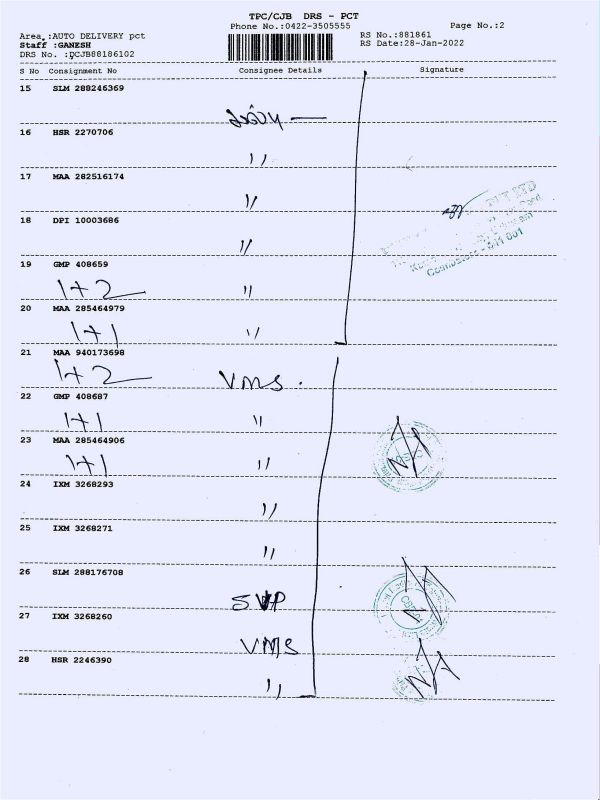 TPC/CJB DRS - PCT
Phone No.:0422-3505555
Page No.:2
Area :AUTO DELIVERY pct
RS No.:881861
Staff :GANESH
RS Date:28-Jan-2022
DRS No. :DCJB88186102
S No Consignment No Consignee Details Signature
15 SLM 288246369
16 HSR 2270706
"
17 MAA 282516174
"
18 DPI 10003686
"
19 GMP 408659
1+2 "
20 MAA 285464979
1+1 "
21 MAA 940173698
1+2 VMS.
22 GMP 408687
1+1 "
23 MAA 285464906
1+1 "
24 IXM 3268293
"
25 IXM 3268271
"
26 SLM 288176708
SVP
27 IXM 3268260
VMS
28 HSR 2246390
"
Coimbatore - 641 001